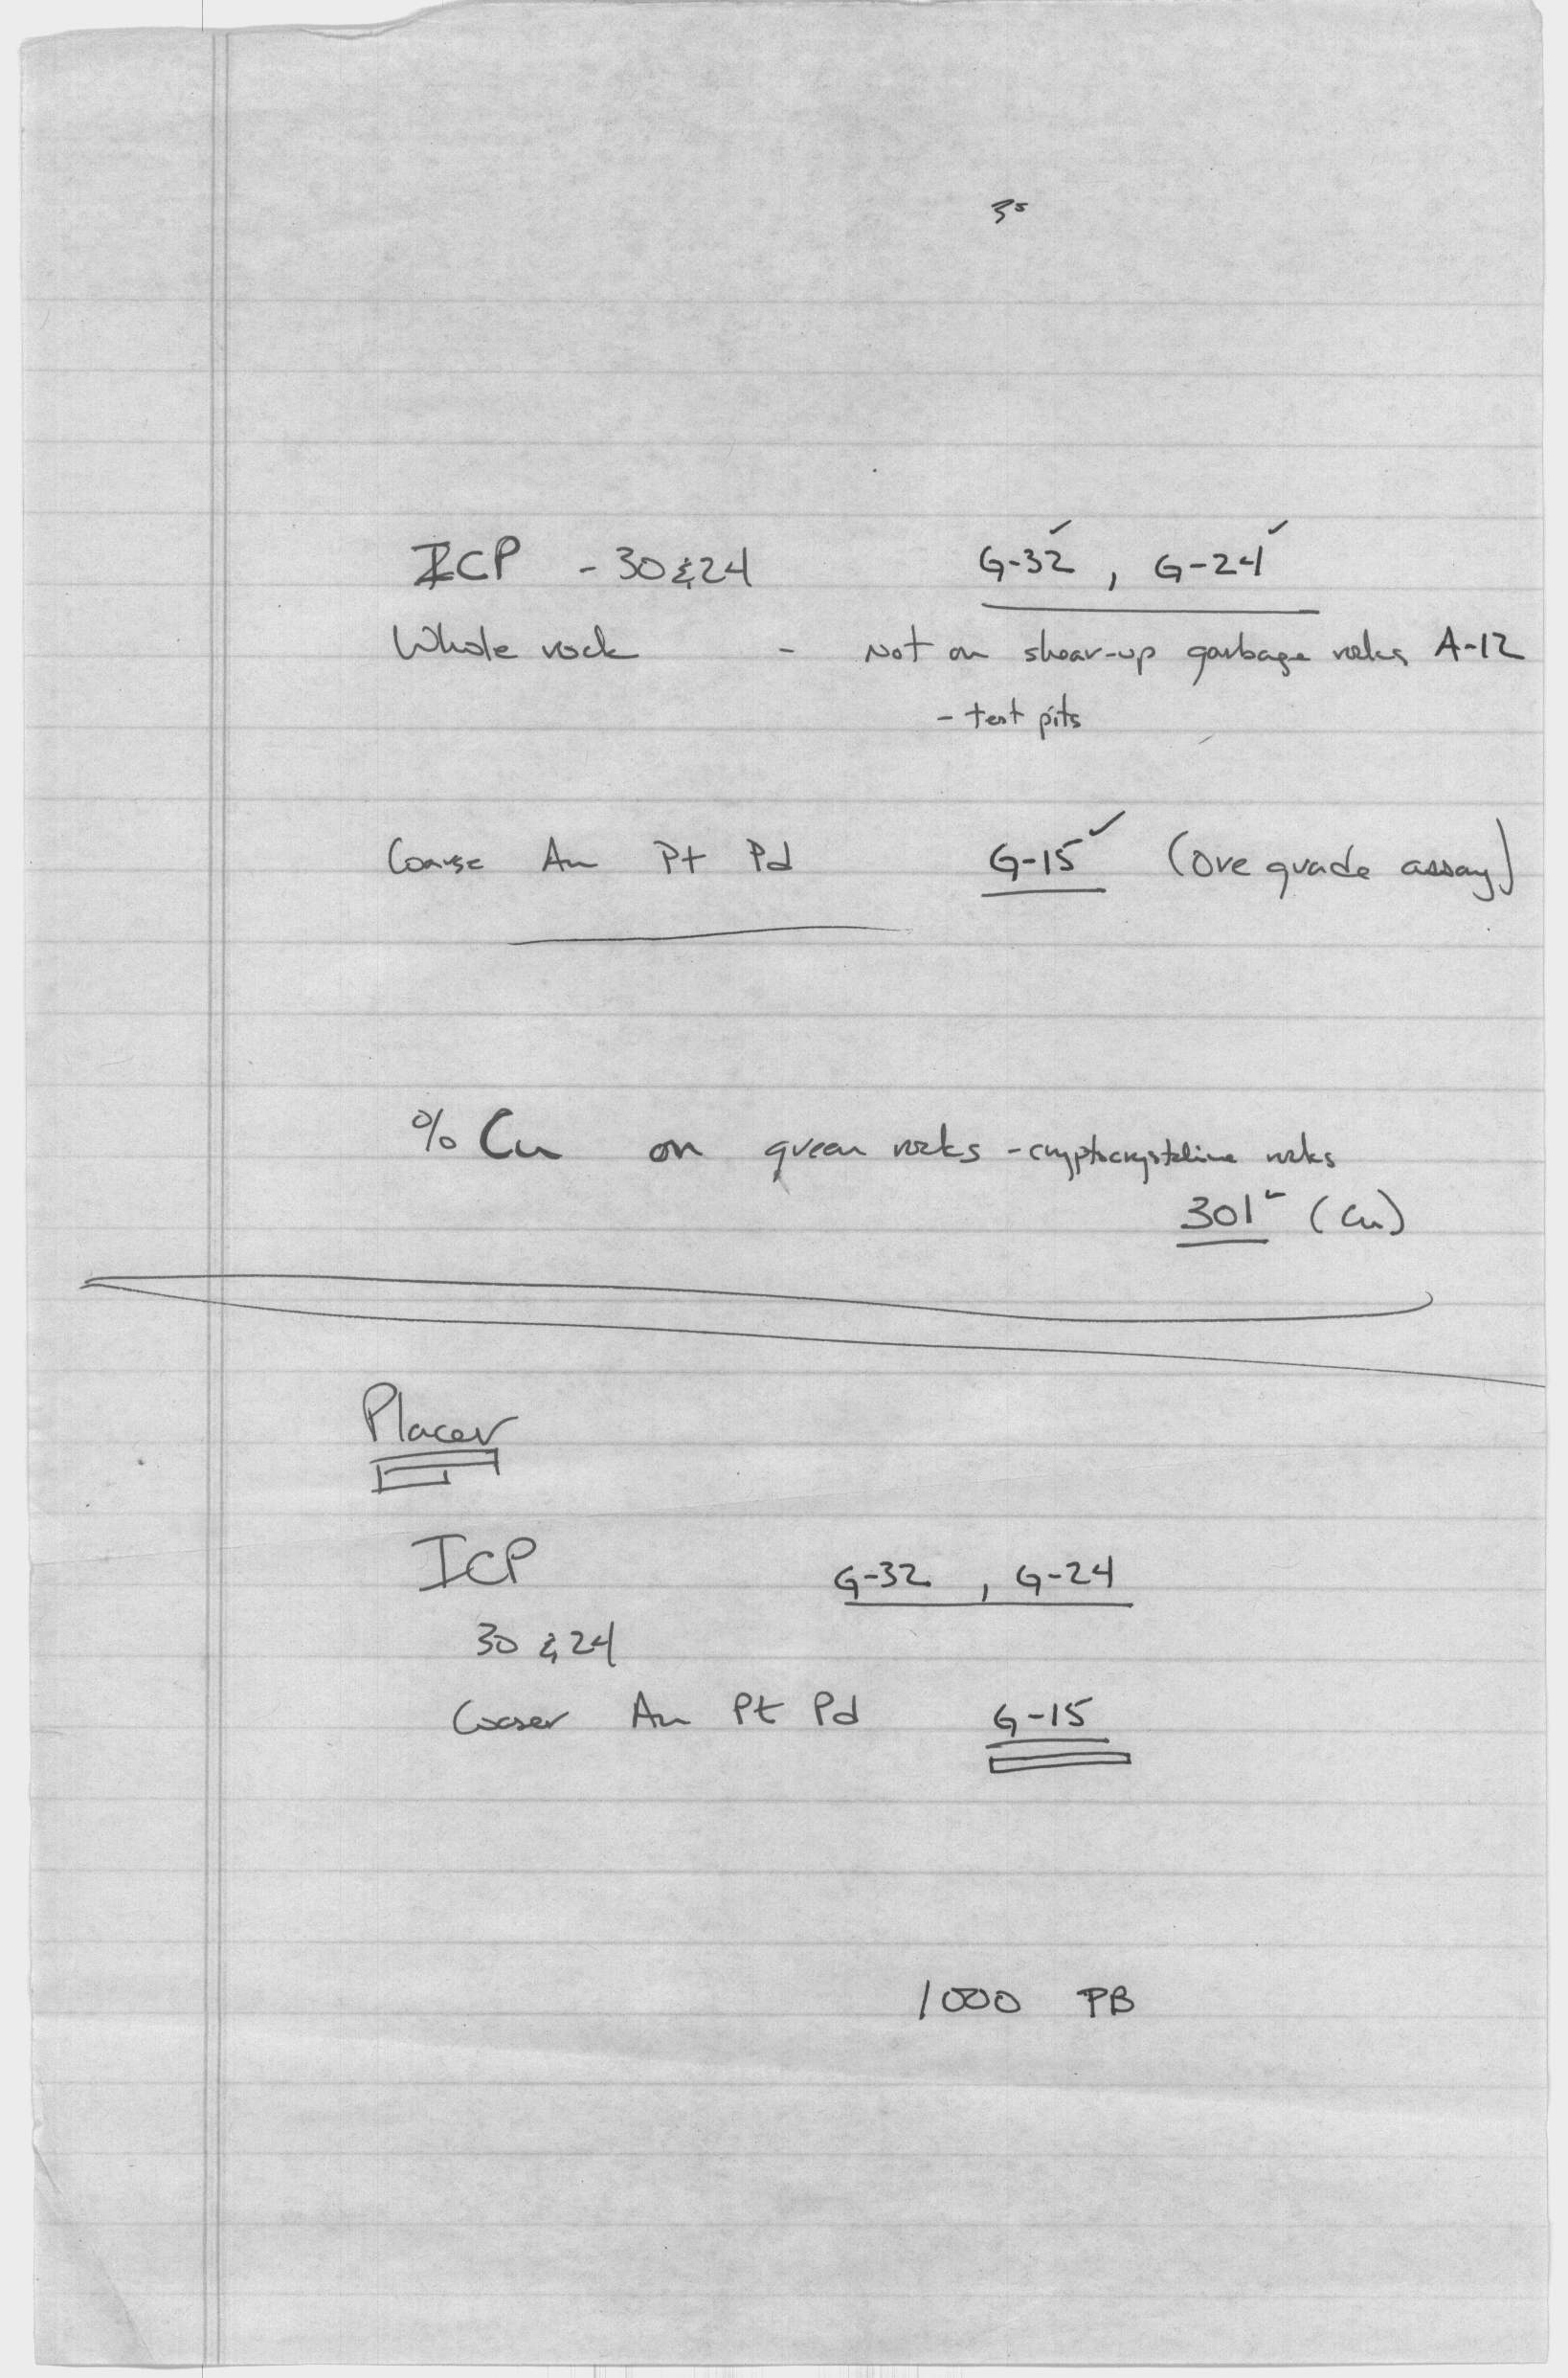 35
ICP - 30 & 24 G-32 ✓, G-24 ✓
Whole rock - Not on shear-up garbage rocks A-12
- test pits
Coarse Au Pt Pd G-15 ✓ (ore grade assay)
% Cu on green rocks - cryptocrystaline rocks
301 ✓ (Cu)
Placer
ICP G-32, G-24
30 & 24
Coaser Au Pt Pd G-15
1000 PB